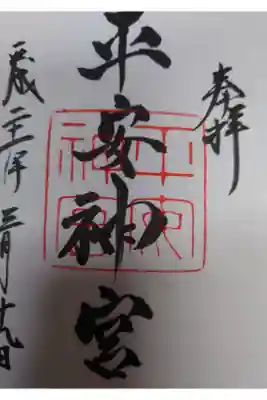 奉拝
平安神宮
平安神宮
平成二十年三月十九日